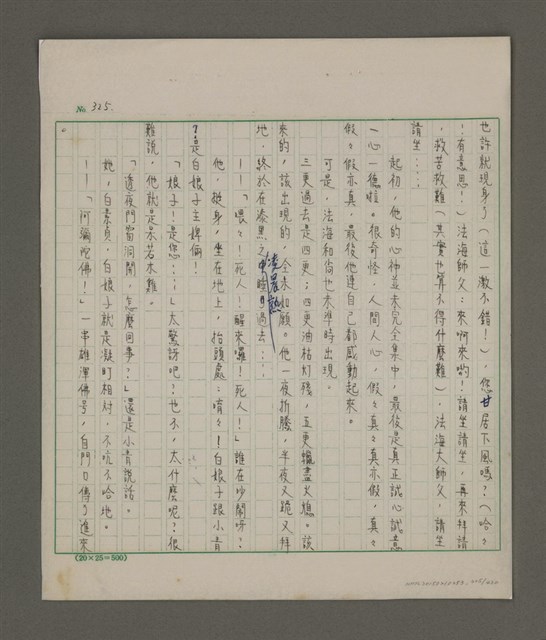 No. 325.
也許就現身了(這一激不錯!),您甘居下風嗎?(哈々
!有意思!)法海師父:來啊來喲!請坐請坐,再來拜請
,救苦救難(其實也算不得什麼難),法海大師父,請坐
請坐⋯⋯
起初,他的心神並未完全集中,最後是真正誠心誠意
一心一德啦。很奇怪,人間人心,假々真々真亦假,真々
假々假亦真,最後他連自己都感動起來。
可是,法海和尚也未準時出現。
三更過去是四更;四更油枯灯殘,五更蠟盡火熄。該
來的,該出現的,全未如願。他一夜折騰,半夜又跪又拜
地,終於在漆黑之凌晨熟睡過去⋯⋯
——「喂々!死人!醒來囉!死人!」誰在吵鬧呀?
他,挺身,坐在地上,抬頭處:唷々!白娘子跟小青
?是白娘子主婢倆!
「娘子!是您⋯⋯」太驚訝吧?也不,太什麼呢?很
難說,他就是呆若木雞。
「透夜門窗洞開,怎麼回事?」還是小青說話。
她,白素貞,白娘子就是凝盯相対,不吭不哈地。
——「阿彌陀佛!」一串雄渾佛号,自門口傳了進來
。
(20×25=500)